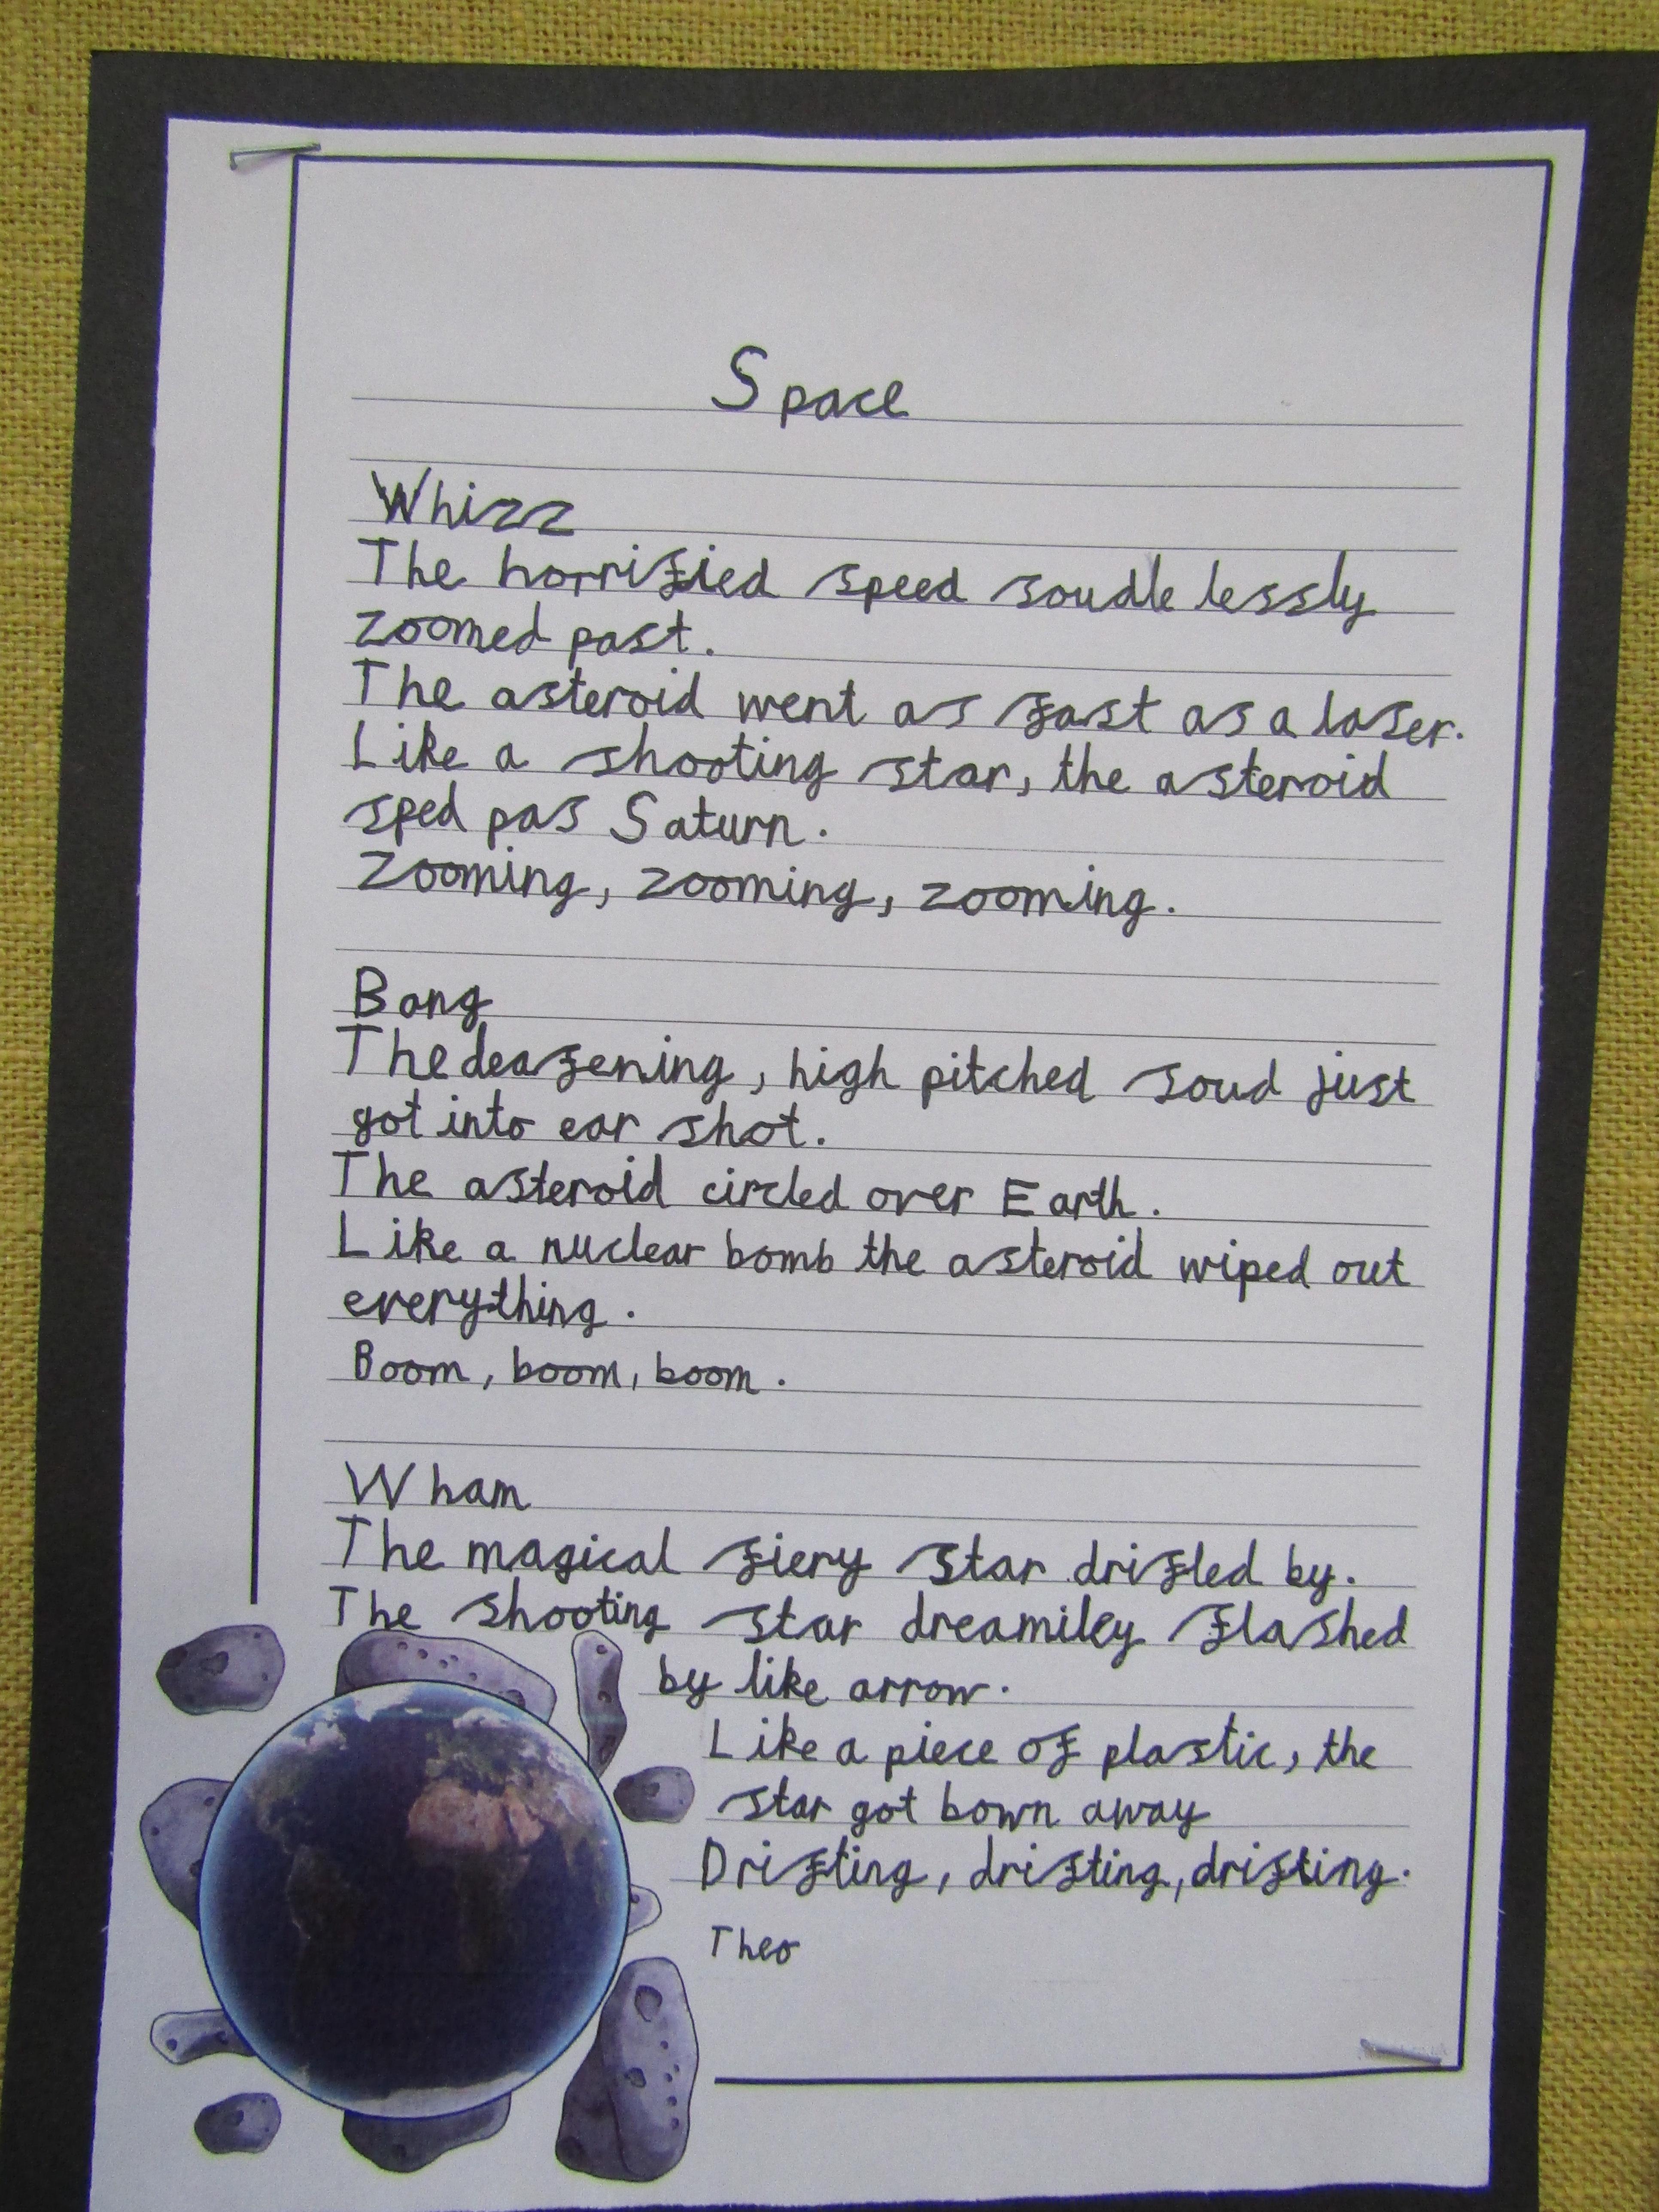 Space
Whizz
The horrified speed soudle lessly
zoomed past.
The asteroid went as fast as a laser.
Like a shooting star, the asteroid
sped pas Saturn.
Zooming, zooming, zooming.
Bang
The deafening, high pitched soud just
got into ear shot.
The asteroid circled over Earth.
Like a nuclear bomb the asteroid wiped out
everything.
Boom, boom, boom.
Wham
The magical fiery star drifled by.
The shooting star dreamiley flashed
by like arrow.
Like a piece of plastic, the
star got bown away
Drifting, drifting, drifting.
Theo